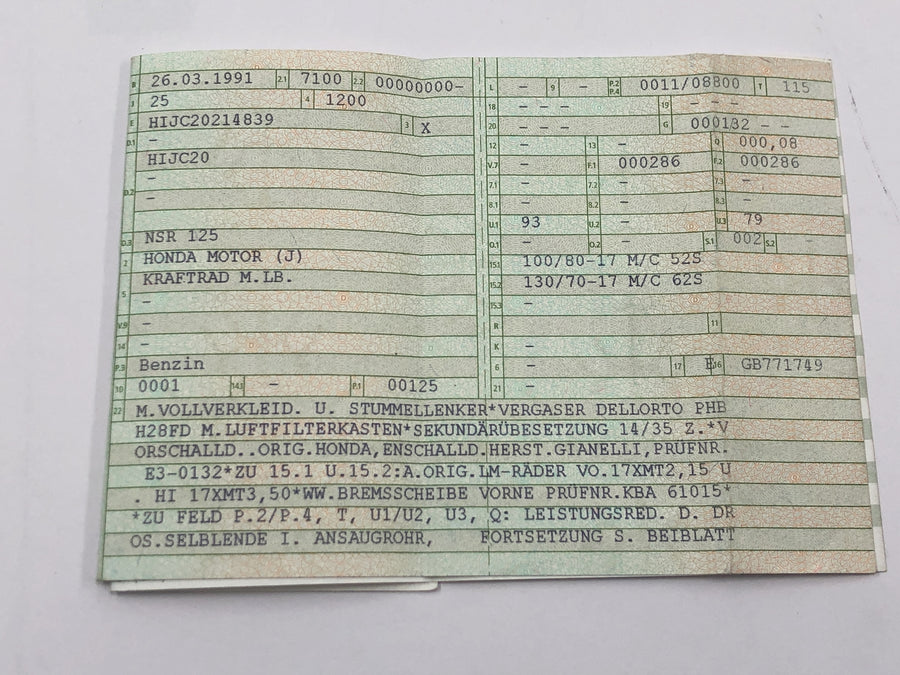 B 26.03.1991 2.1 7100 2.2 00000000-
J 25 4 1200
E HIJC20214839 3 X
D.1 -
HIJC20
-
D.2 -
D.3 NSR 125
2 HONDA MOTOR (J)
KRAFTRAD M.LB.
5 -
V.9 -
14 -
P.3 Benzin
10 0001 14.1 - P.1 00125
L - 9 - P.2 P.4 0011/08800 T 115
18 - - - 19 - - -
20 - - - G 000132 - -
12 - 13 - Q 000,08
V.7 - F.1 000286 F.2 000286
7.1 - 7.2 - 7.3 -
8.1 - 8.2 - 8.3 -
U.1 93 U.2 - U.3 79
O.1 - O.2 - S.1 002 S.2 -
15.1 100/80-17 M/C 52S
15.2 130/70-17 M/C 62S
15.3 -
R 11
K -
6 - 17 E 16 GB771749
21 -
22 M.VOLLVERKLEID. U. STUMMELLENKER*VERGASER DELLORTO PHB
H28FD M.LUFTFILTERKASTEN*SEKUNDÄRÜBESETZUNG 14/35 Z.*V
ORSCHALLD..ORIG.HONDA,ENSCHALLD.HERST.GIANELLI,PRÜFNR.
E3-0132*ZU 15.1 U.15.2:A.ORIG.LM-RÄDER VO.17XMT2,15 U
. HI 17XMT3,50*WW.BREMSSCHEIBE VORNE PRÜFNR.KBA 61015*
*ZU FELD P.2/P.4, T, U1/U2, U3, Q: LEISTUNGSRED. D. DR
OS.SELBLENDE I. ANSAUGROHR, FORTSETZUNG S. BEIBLATT